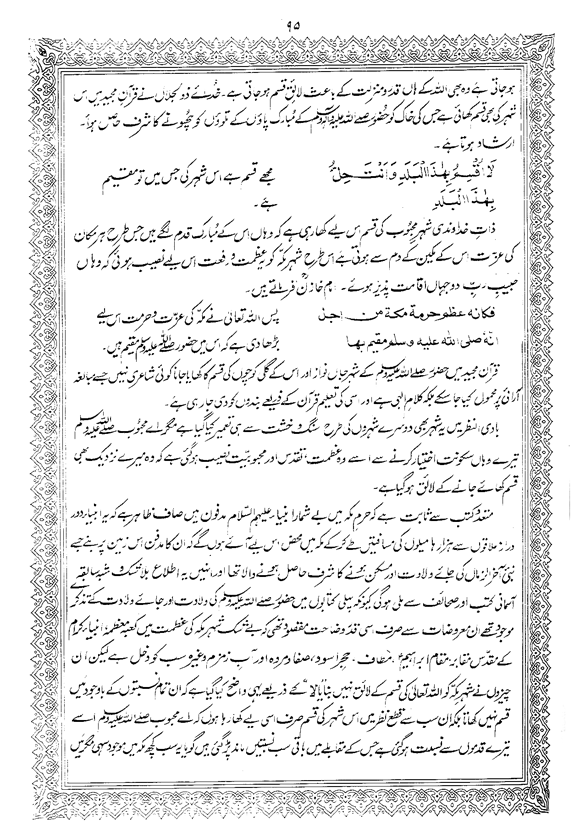 ۹۵
ہو جاتی ہے وہ بھی اللہ کے ہاں قدر و منزلت کے باعث لائقِ قسم ہو جاتی ہے۔ خدائے ذوالجلال نے قرآنِ مجید میں اس
شہر کی بھی قسم کھائی ہے جس کی خاک کو حضور صلی اللہ علیہ وآلہ وسلم کے مبارک پاؤں کے تلوؤں کو چھونے کا شرف حاصل ہوا۔
ارشاد ہوتا ہے۔
لَا أُقْسِمُ بِهٰذَا الْبَلَدِ وَأَنْتَ حِلٌّ
بِهٰذَا الْبَلَدِ
مجھے قسم ہے اس شہر کی جس میں تو مقیم
ہے۔
ذاتِ خداوندی شہرِ محبوب کی قسم اس لیے کھا رہی ہے کہ وہاں اس کے مبارک قدم لگے ہیں جس طرح ہر مکان
کی عزت اس کے مکین کے دم سے ہوتی ہے اس طرح شہر مکہ کو عظمت و رفعت اس لیے نصیب ہوئی کہ وہاں
حبیبِ ربِّ دو جہاں اقامت پذیر ہوئے۔ خازن فرماتے ہیں۔
فكانه عظم حرمة مكة من اجل
انه صلى الله عليه وسلم مقيم بها
پس اللہ تعالیٰ نے مکہ کی عزت و حرمت اس لیے
بڑھا دی ہے کہ اس میں حضور صلی اللہ علیہ وسلم مقیم ہیں۔
قرآن مجید میں حضور صلی اللہ علیہ وسلم کے شہرِ جاں نواز اور اس کے گلی کوچوں کی قسم کا کھایا جانا کوئی شاعری نہیں جسے مبالغہ
آرائی پر محمول کیا جا سکے بلکہ کلامِ الٰہی ہے اور اسی کی تعلیم قرآن کے ذریعے بندوں کو دی جا رہی ہے۔
بادی النظر میں یہ شہر بھی دوسرے شہروں کی طرح سنگ و خشت سے ہی تعمیر کیا گیا ہے مگر اے محبوب صلی اللہ علیہ وسلم
تیرے وہاں سکونت اختیار کرنے سے اسے وہ عظمت، تقدس اور محبوبیت نصیب ہو گئی ہے کہ وہ میرے نزدیک بھی
قسم کھائے جانے کے لائق ہو گیا ہے۔
متعدد کتب سے ثابت ہے کہ حرمِ مکہ میں بے شمار انبیاء علیہم السلام مدفون ہیں صاف ظاہر ہے کہ یہ انبیاء دور
دراز علاقوں سے ہزارہا میلوں کی مسافتیں طے کر کے مکہ میں محض اس لیے آئے ہوں گے کہ ان کا مدفن اس زمین پر بنے جسے
نبیِ آخر الزماں کی جائے ولادت اور مسکن بننے کا شرف حاصل ہونے والا تھا اور انہیں یہ اطلاع بلا شک و شبہ سابقہ
آسمانی کتب اور صحائف سے ملی ہو گی کیونکہ پہلی کتابوں میں حضور صلی اللہ علیہ وسلم کی ولادت اور جائے ولادت کے تذکرے
موجود تھے ان معروضات سے صرف اسی قدر وضاحت مقصود تھی کہ بے شک شہر مکہ کی عظمت میں کعبۂ معظمہ، انبیاء کرام
کے مقدس مقابر، مقام ابراہیم، مطاف، حجر اسود، صفا و مروہ اور آب زمزم وغیرہ سب کو دخل ہے لیکن ان
چیزوں نے شہر مکہ کو اللہ تعالیٰ کی قسم کے لائق نہیں بنایا بلکہ کے ذریعے یہی واضح کیا گیا ہے کہ ان تمام نسبتوں کے باوجود میں
قسم نہیں کھاتا بلکہ ان سب سے قطع نظر میں اس شہر کی قسم صرف اسی لیے کھا رہا ہوں کہ اے محبوب صلی اللہ علیہ وسلم اسے
تیرے قدموں سے نسبت ہو گئی ہے جس کے مقابلے میں باقی سب نسبتیں ماند پڑ گئی ہیں گویا یہ سب کچھ مکہ میں موجود سہی مگر میں